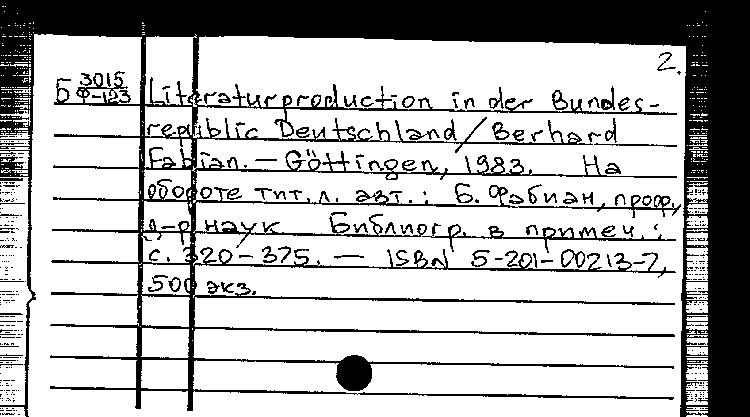 2.
Б 3015/Ф-123 Literaturproduction in der Bundes-
republic Deutschland/Berhard
Fabian. — Göttingen, 1983. На
обороте тит. л. авт.: Б. Фабиан, проф.,
д-р наук Библиогр. в примеч.:
с. 320-375. — ISBN 5-201-00213-7,
500 экз.